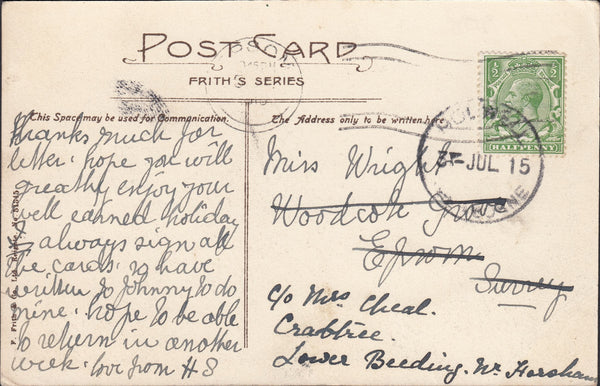 POST CARD
FRITH'S SERIES
This Space may be used for Communication.
The Address only to be written here.
thanks much for
letter. hope you will
greatly enjoy your
well earned holiday
I always sign all
the cards. so have
written to Johnny to do
mine. hope to be able
to return in another
week. love from H S
Miss Wright
Woodcote
Epsom
Surrey
c/o Mrs Cheal.
Crabtree.
Lower Beeding. Nr Horsham
½ ½
HALFPENNY
3 JUL 15